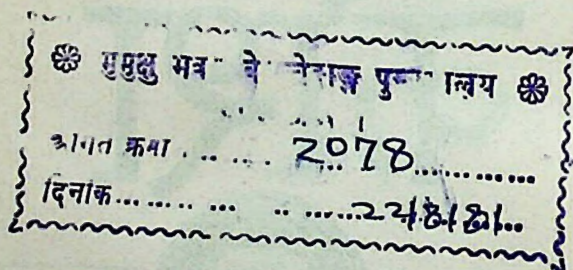 मुमुक्षु भव वे पुस्तकालय
आगत क्रमा ........ 2078............
दिनांक............22/8/81..